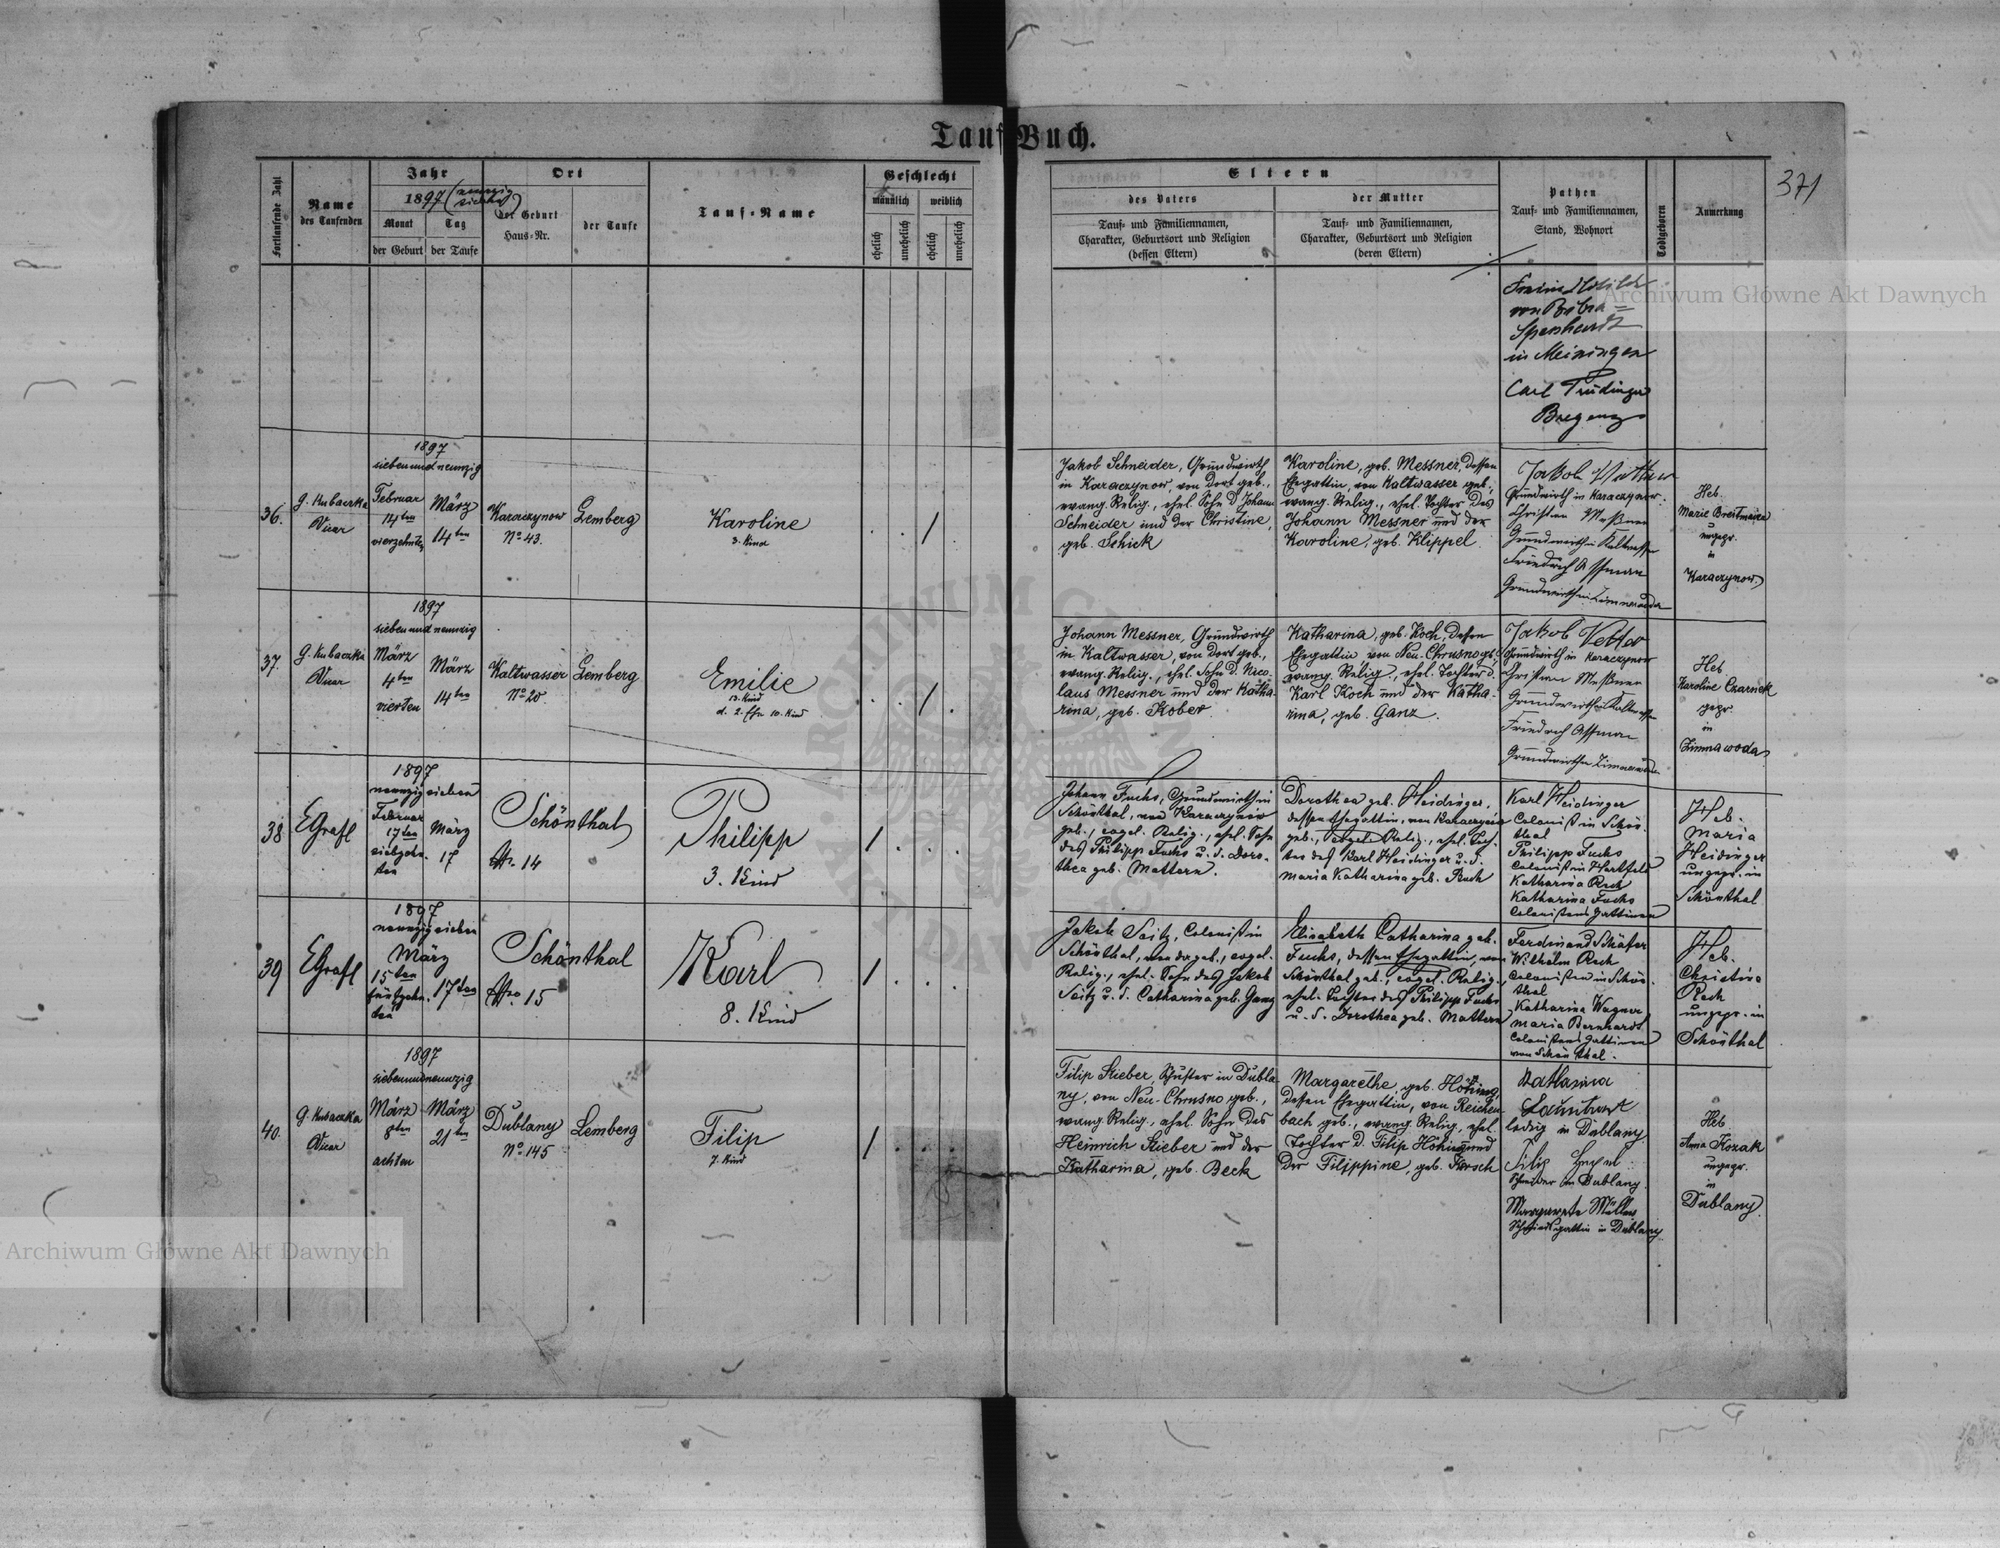 Tauf Buch.
371
Fortlaufende Zahl
Name
des Taufenden
Jahr
1897 (neunzig
sieben)
Monat
Tag
der Geburt
der Taufe
Ort
der Geburt
Haus-Nr.
der Taufe
Tauf-Name
Geschlecht
männlich
weiblich
ehelich
unehelich
ehelich
unehelich
Eltern
des Vaters
Tauf- und Familiennamen,
Charakter, Geburtsort und Religion
(dessen Eltern)
der Mutter
Tauf- und Familiennamen,
Charakter, Geburtsort und Religion
(deren Eltern)
Pathen
Tauf- und Familiennamen,
Stand, Wohnort
Todtgeboren
Anmerkung
von Bibra=
in Meiningen
Carl
Bregenz
36.
G. Kubaczka
Vicar
1897
siebenundneunzig
Februar
14ten
vierzehnten
März
14ten
Karaczynow
No 43.
Lemberg
Karoline
3. Kind
/
Jakob Schneider, Grundwirth
in Karaczynow, von dort geb.,
evang. Relig., ehel. Sohn d. Johann
Schneider und der Christine,
geb. Schick
Karoline, geb. Messner, dessen
Ehegattin, von Kaltwasser geb.,
evang. Relig., ehel. Tochter des
Johann Messner und der
Karoline, geb. Klippel.
Jakob
Grundwirth in Karaczynow.
Christian Meßner
Grundwirth in Kaltwasser
Friedrich Assman
Grundwirth in Zimnawoda
Heb.
Marie Breitmaier
ungepr.
in
Karaczynow.
37.
G. Kubaczka
Vicar
1897
siebenundneunzig
März
4ten
vierten
März
14ten
Kaltwasser
No 20.
Lemberg
Emilie
12. Kind
d. 2. Ehe 10. Kind
/
Johann Messner, Grundwirth
in Kaltwasser, von dort geb.,
evang. Relig., ehel. Sohn d. Nico-
laus Messner und der Katha-
rina, geb. Kober.
Katharina, geb. Koch, dessen
Ehegattin von Neu-Chrusno geb.,
evang. Relig., ehel. Tochter d.
Karl Koch und der Katha-
rina, geb. Ganz.
Jakob Vetter
Grundwirth in Karaczynow
Christian Meßner
Grundwirth in Kaltwasser
Friedrich Assman
Grundwirth in Zimnawoda
Heb.
Karoline Czarnek
gepr.
in
Zimnawoda
38
EGrafl
1897
neunzig sieben
Februar
17ten
siebzehn-
ten
März
17
Schönthal
Nro. 14
Philipp
3. Kind
/
Johann Fuchs, Grundwirth in
Schönthal, von Karaczynow
geb., evgel. Relig., ehel. Sohn
des Philipp Fuchs u. d. Doro-
thea geb. Mattern.
Dorothea geb. Heidinger,
dessen Ehegattin, von Karaczynow
geb., evgel. Relig., ehel. Toch-
ter des Karl Heidinger u. d.
Maria Katharina geb. Rech
Karl Heidinger
Colonist in Schön-
thal
Philipp Fuchs
Colonist in Hartfeld
Katharina Rech
Katharina Fuchs
Colonistens Gattinen
Heb.
Maria
Heidinger
ungepr. in
Schönthal
39
EGrafl
1897
neunzig sieben
März
15ten
fünfzehn-
ten
17ten
Schönthal
Nro. 15
Karl
8. Kind
/
Jakob Seitz, Colonist in
Schönthal, von da geb., evgel.
Relig., ehel. Sohn des Jakob
Seitz u. d. Catharina geb. Ganz
Elisabeth Catharina geb.
Fuchs, dessen Ehegattin, von
Schönthal geb., evgel. Relig.,
ehel. Tochter des Philipp Fuchs
u. d. Dorothea geb. Mattern
Ferdinand Schäfer
Wilhelm Rech
Colonisten in Schön-
thal
Katharina Wagner
Maria Bernhardt
Colonistens Gattinen
von Schönthal.
Heb.
Christine
Rech
ungepr. in
Schönthal
40.
G. Kubaczka
Vicar
1897
siebenundneunzig
März
8ten
achten
März
21ten
Dublany
No. 145
Lemberg
Filip
7. Kind
/
Filip Stieber, Schuster in Dubla-
ny, von Neu-Chrusno geb.,
evang. Relig., ehel. Sohn des
Heinrich Stieber und der
Katharina, geb. Beck
Margarethe, geb. Höhing,
dessen Ehegattin, von Reichen-
bach geb., evang. Relig., ehel.
Tochter d. Filip Höhing und
der Filippine, geb. Horsch
Katharina
ledig in Dublany
Filip
Schneider in Dublany.
Margarete Müller
Schmiedsgattin in Dublany.
Heb.
Anna Kozak
ungepr.
in
Dublany
Archiwum Główne Akt Dawnych
Archiwum Główne Akt Dawnych